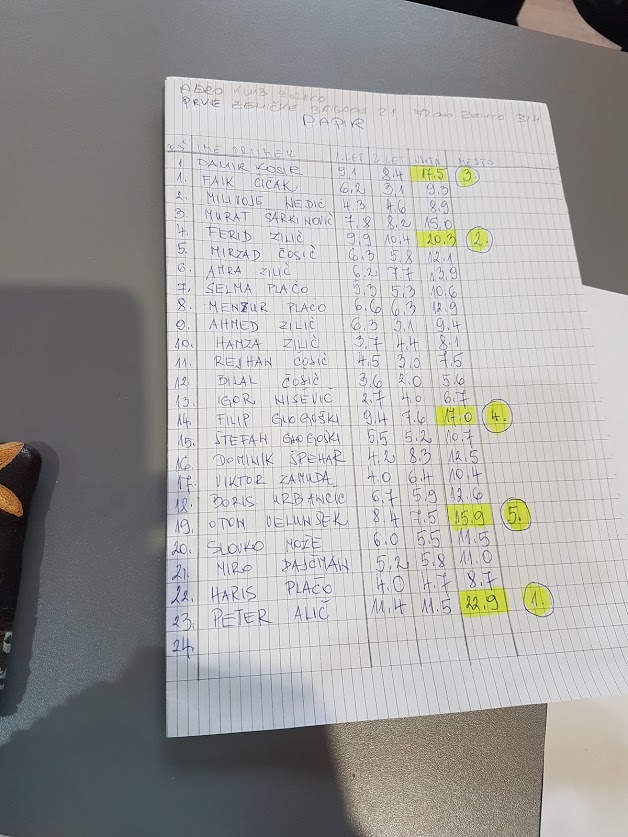 AERO KLUB ZENICA
PRVE ZENIČKE BRIGADE 21 72000 ZENICA BIH
PAPIR
IME PRIIMEK 1.LET 2.LET VSOTA MESTO
1 DAMIR KOSIR 9,1 8.4 17.5 3.
1. FAIK ČIČAK 6.2 3.1 9.3
2. MILIVOJE NEDIĆ 4.3 4.6 8.9
3. MURAT SARKINOVIĆ 7.8 8.2 15.0
4. FERID ZILIĆ 9.9 10.4 20.3 2.
5. MIRZAD ĆOSIĆ 6.3 5.8 12.1
6. AMRA ZILIĆ 6.2 7.7 13.9
7. SELMA PLAČO 5.3 5.3 10.6
8. MENZUR PLAČO 6.6 6.3 12.9
9. AHMED ZILIĆ 6.3 3.1 9.4
10. HAMZA ZILIĆ 3.7 4.4 8.1
11. REJHAN ĆOSIĆ 4.5 3.0 7.5
12. BILAL ĆOSIĆ 3.6 2.0 5.6
13. IGOR NIŠEVIĆ 2.7 4.0 6.7
14. FILIP GLOGOŠKI 9.4 7.6 17.0 4.
15. ŠTEFAN GLOGOŠKI 5,5 5.2 10.7
16. DOMINIK ŠPEHAR 4.2 8.3 12.5
17. VIKTOR ZAMUDA 4.0 6.4 10.4
18. BORIS URBANČIČ 6.7 5.9 12.6
19. OTON VELUNŠEK 8.4 7.5 15.9 5.
20. SLOVKO MOŽE 6.0 5.5 11.5
21. MIRO DAJČMAN 5.2 5.8 11.0
22. HARIS PLAČO 4.0 4.7 8.7
23. PETER ALIČ 11.4 11.5 22.9 1.
24.